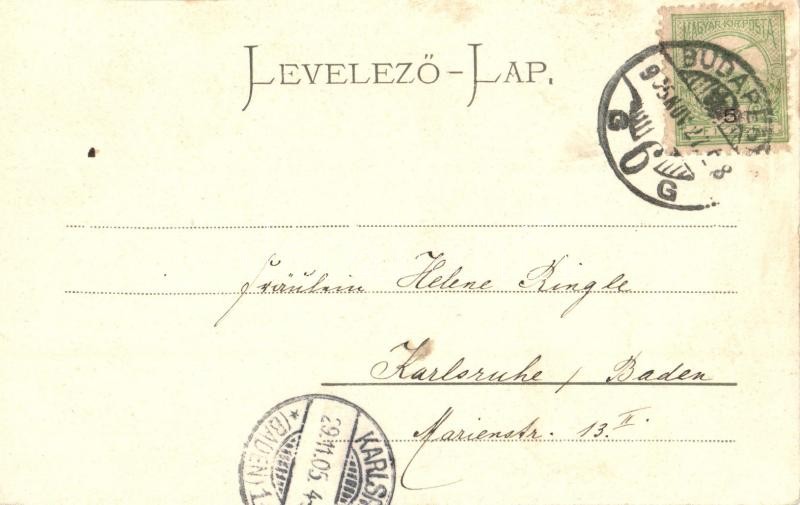 LEVELEZŐ-LAP.
MAGYAR KIR. POSTA
5
BUDAPEST
905 NOV 27
6
G G
Fräulein Helene Ringle
Karlsruhe / Baden
Marienstr. 13.II
KARLSR
29.11.05. 4
* (BADEN) 1.